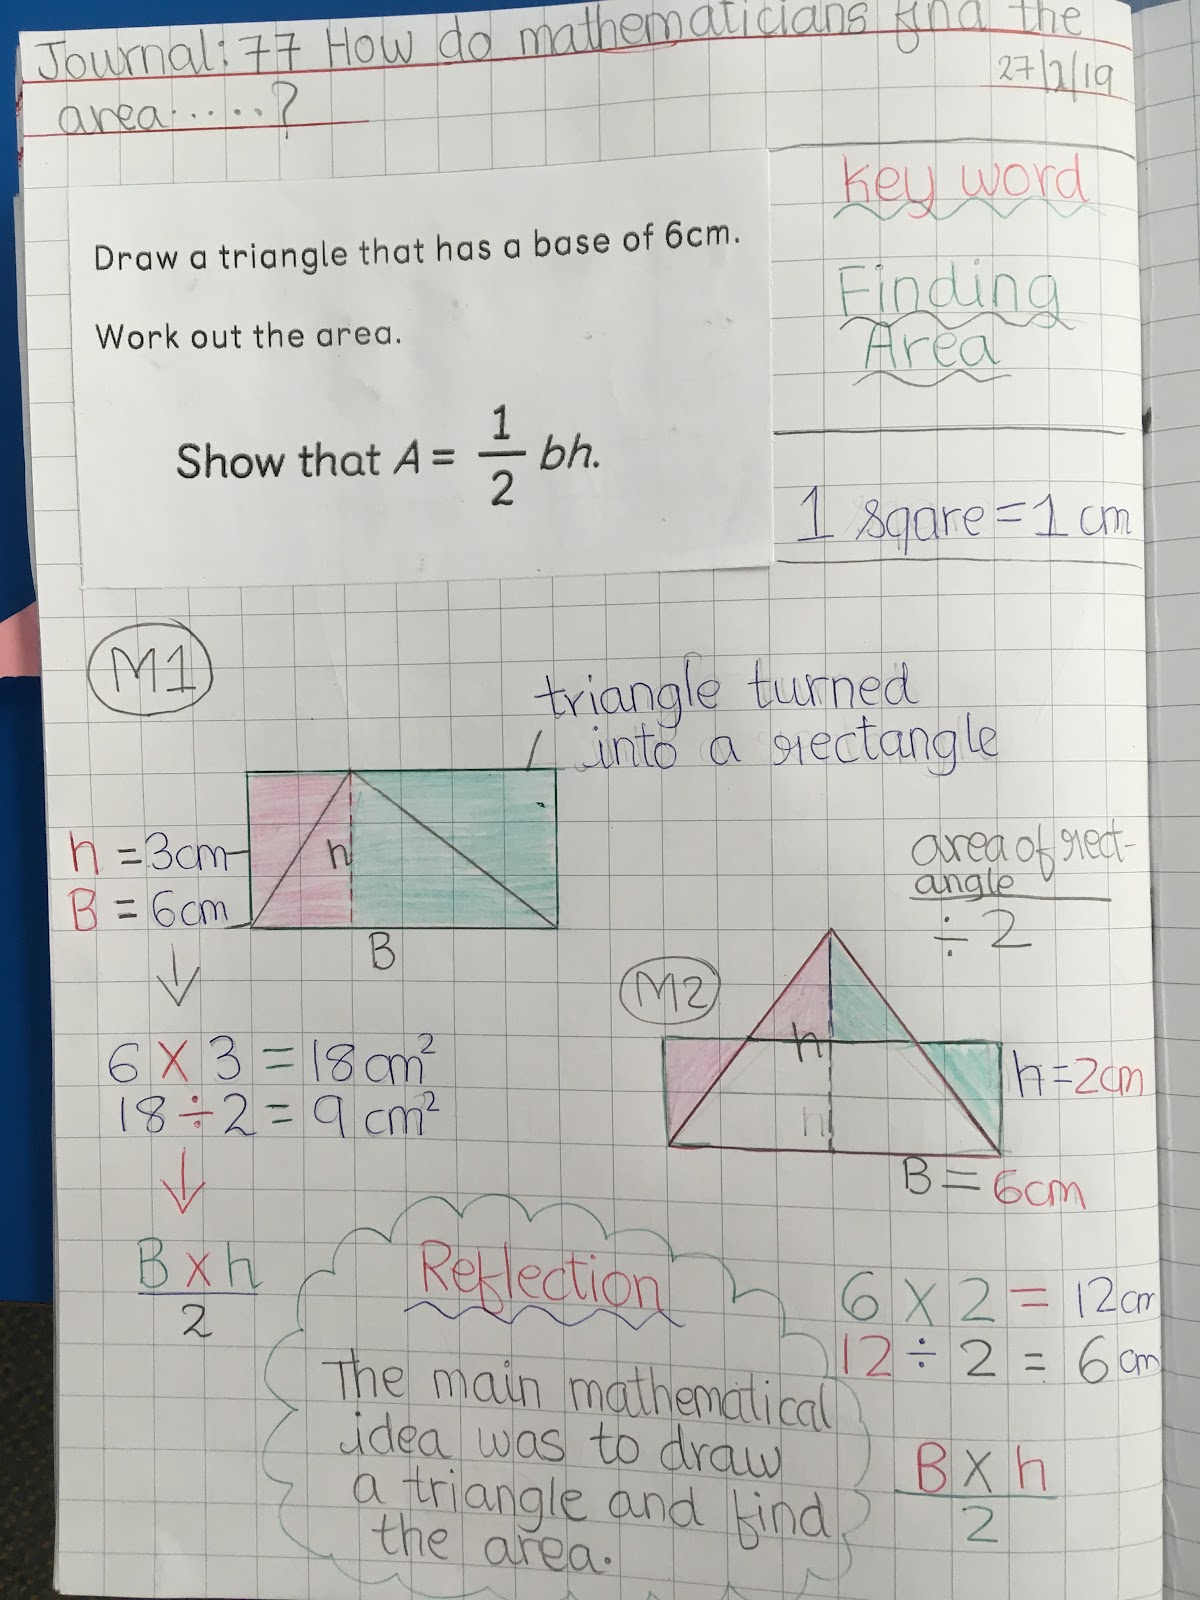 Journal: 77 How do mathematicians find the
area.....?
27/2/19
Key word
Finding
Area
1 sqare = 1 cm
Draw a triangle that has a base of 6cm.
Work out the area.
Show that A = 1/2 bh.
M1
triangle turned
into a rectangle
h = 3cm
B = 6cm
h
B
6 X 3 = 18 cm²
18 ÷ 2 = 9 cm²
B x h
2
area of rect-
angle
÷ 2
M2
h
h
h = 2cm
B = 6cm
6 X 2 = 12 cm
12 ÷ 2 = 6 cm
B X h
2
Reflection
The main mathematical
idea was to draw
a triangle and find
the area.